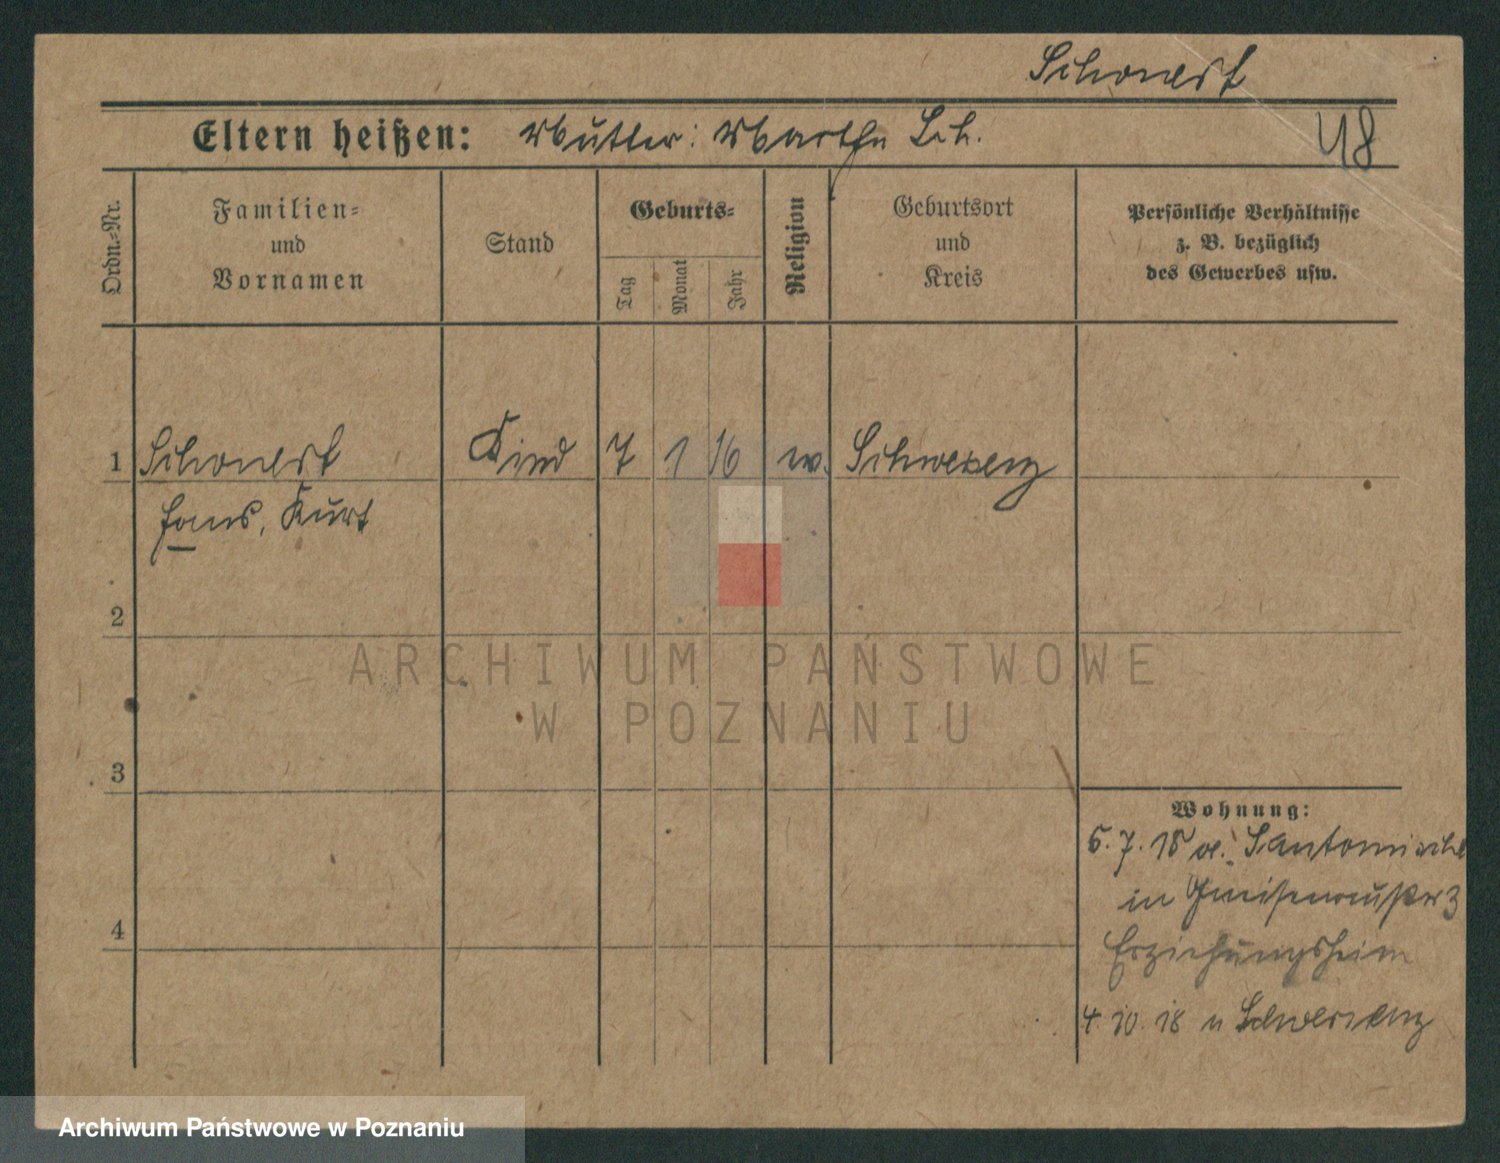 Schonert
Eltern heißen: Mutter: Martha Sch.
48
Ordn.-Nr.
Familien-
und
Vornamen
Stand
Geburts-
Tag
Monat
Jahr
Religion
Geburtsort
und
Kreis
Persönliche Verhältnisse
z. B. bezüglich
des Gewerbes usw.
1 Schonert Kind 7 1 16 Schwersenz
Hans, Kurt
2
ARCHIWUM PAŃSTWOWE
W POZNANIU
3
Wohnung:
5. 7. 18
in Gneisenaustr 3
Erziehungsheim
4
4. 10. 18 n Schwersenz
Archiwum Państwowe w Poznaniu